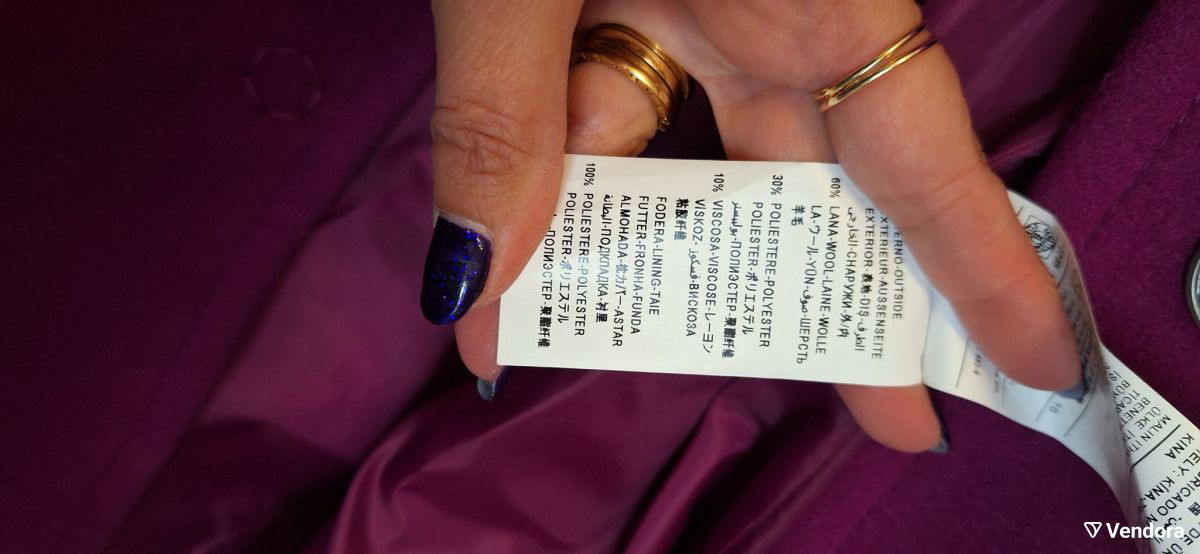 ERNO-OUTSIDE
EXTERIEUR-AUSSENSEITE
EXTERIOR-表地-DIŞ-الطرف
الخارجي-СНАРУЖИ-外/内
60% LANA-WOOL-LAINE-WOLLE
LA-ウール-YÜN-صوف-ШЕРСТЬ
羊毛
30% POLIESTERE-POLYESTER
POLIESTER-ポリエステル
بوليستر-ПОЛИЭСТЕР-聚酯纤维
10% VISCOSA-VISCOSE-レーヨン
VİSKOZ-فسكوز-ВИСКОЗА
粘胶纤维
FODERA-LINING-TAIE
FUTTER-FRONHA-FUNDA
ALMOHADA-枕カバー-ASTAR
البطانة-ПОДКЛАДКА-衬里
100% POLIESTERE-POLYESTER
POLIESTER-ポリエステル
-ПОЛИЭСТЕР-聚酯纤维
MALIN
ÜLKE
BENET
KINA
Vendora